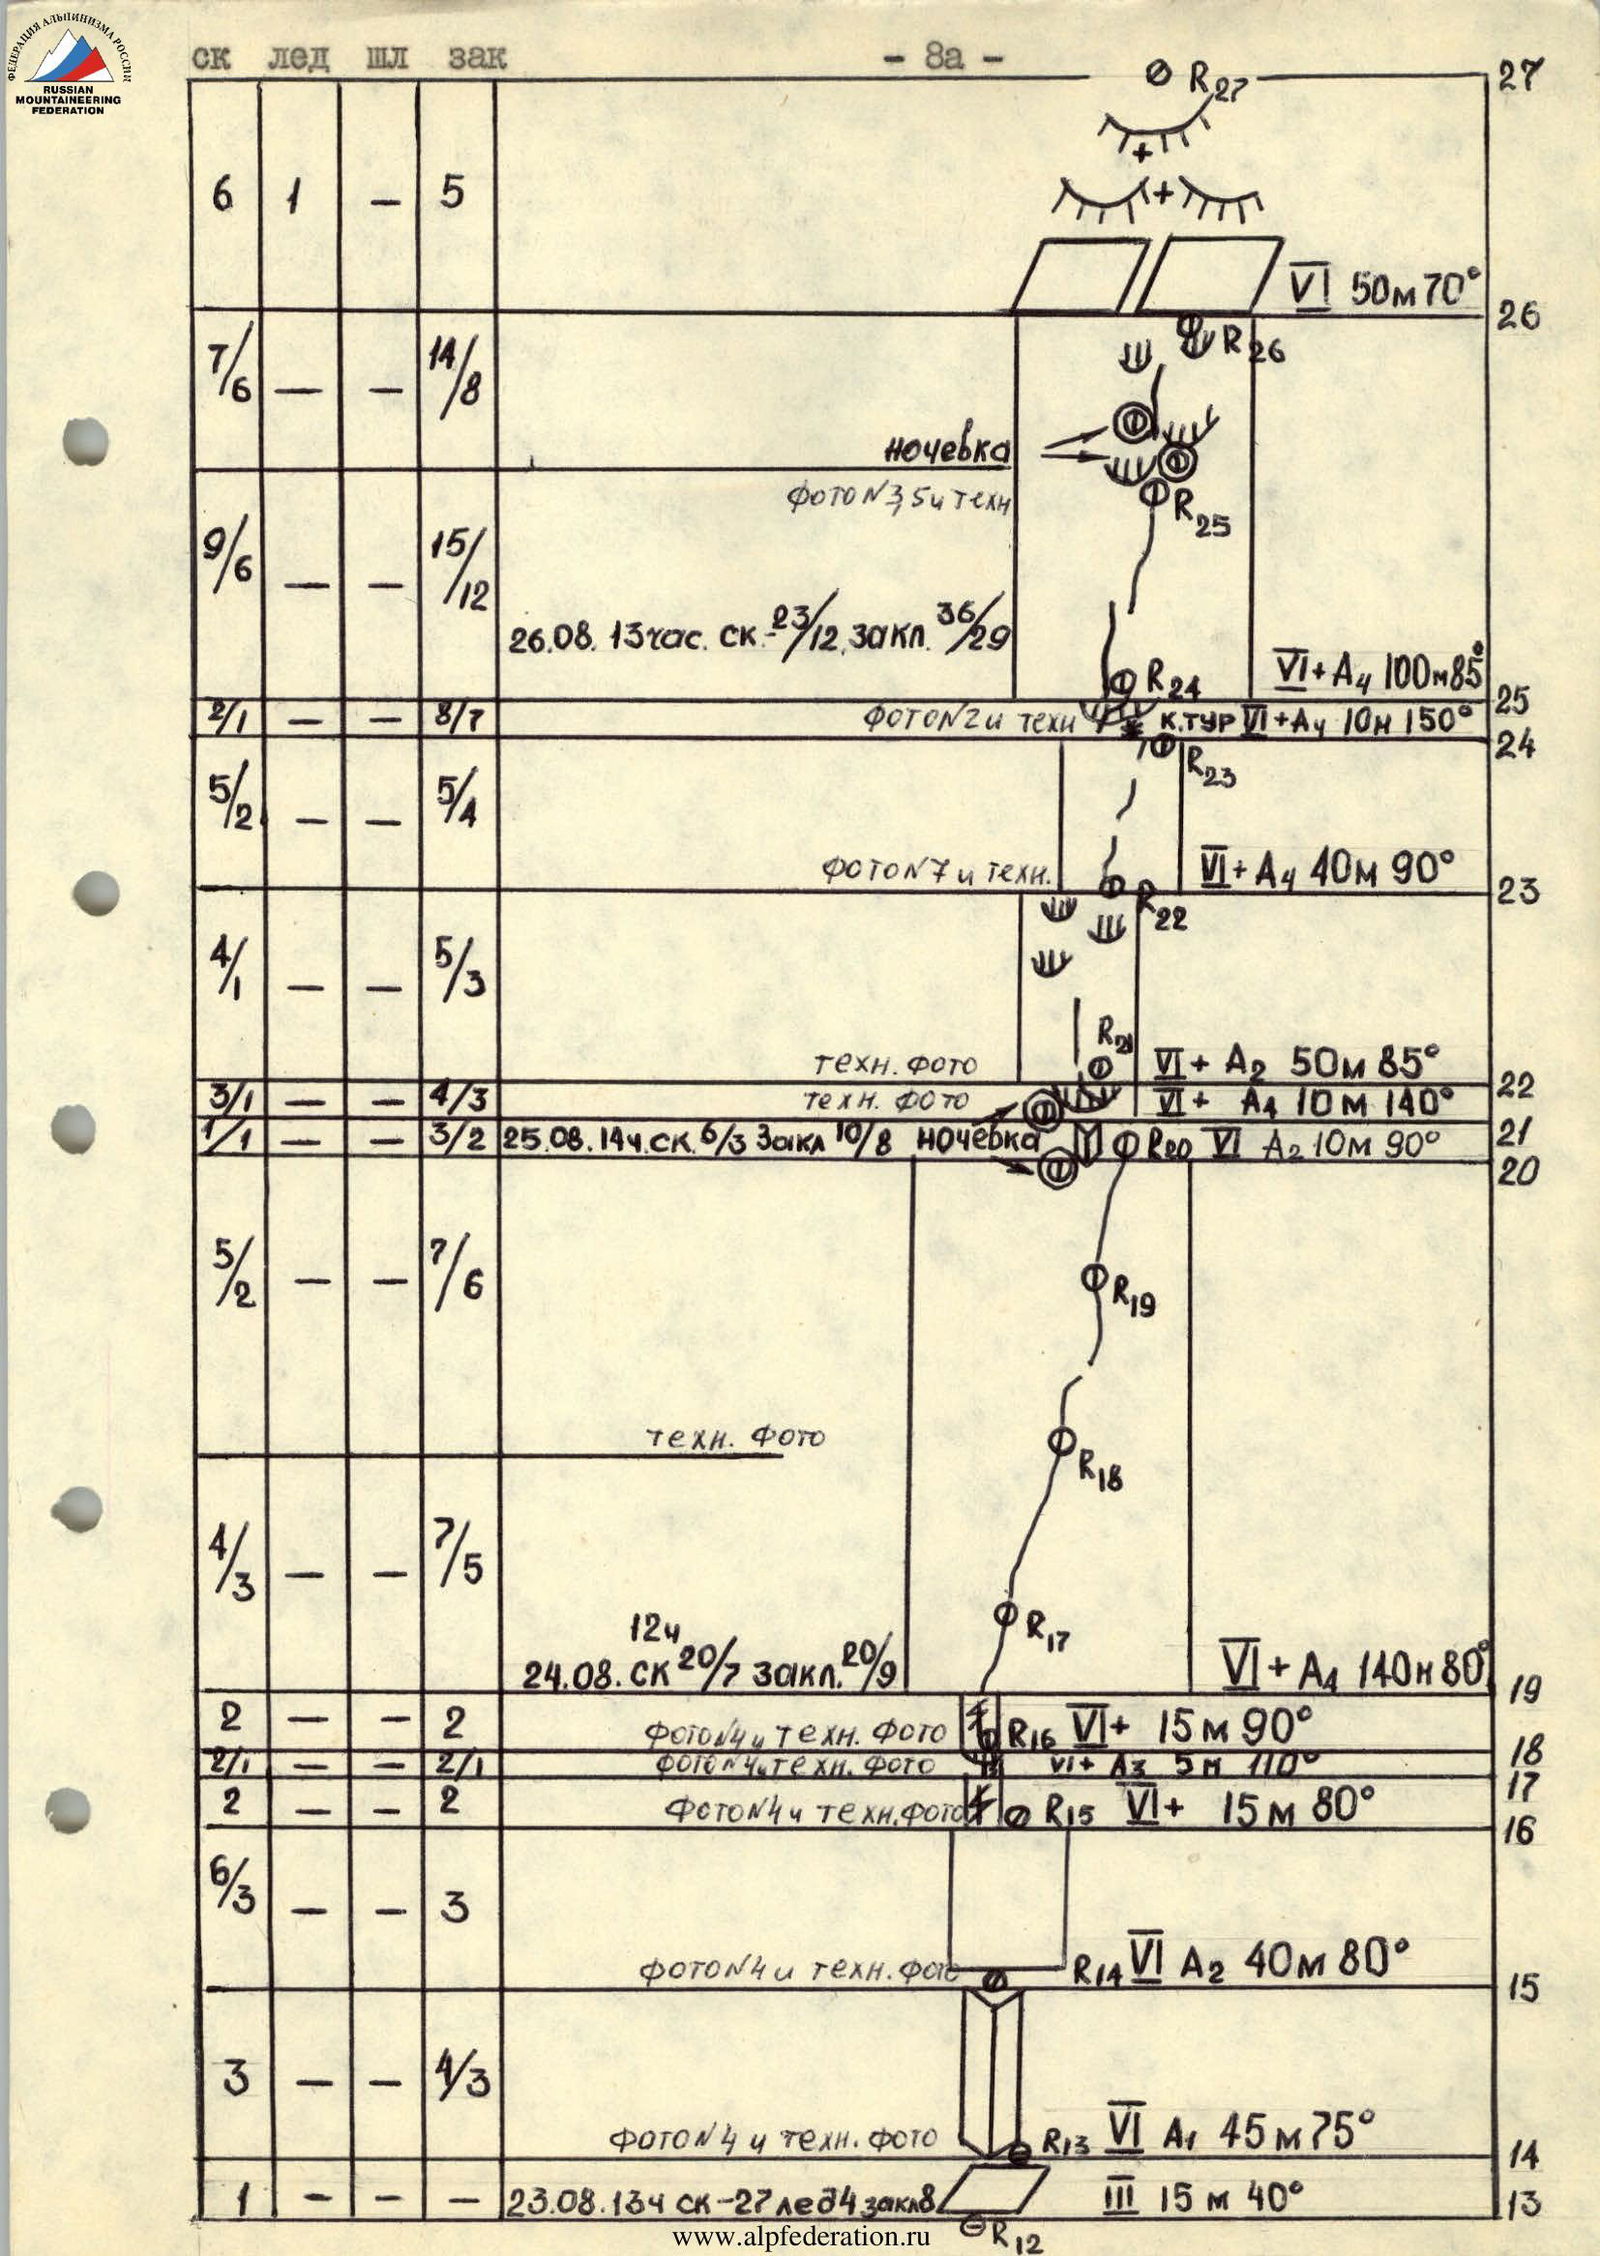 ФЕДЕРАЦИЯ АЛЬПИНИЗМА РОССИИ
RUSSIAN
MOUNTAINEERING
FEDERATION
ск лед шл зак - 8а -
R27 27
6 1 — 5
VI 50м 70°
26
7/6 — — 14/8
R26
ночевка
фото N3,5 и техн
R25
9/6 — — 15/12
26.08. 13час. ск.-23/12, закл. 36/29
R24 VI+ A4 100м 85°
25
2/1 — — 8/7 фото N2 и техн к.тур VI+A4 10м 150°
24
R23
5/2 — — 5/4
фото N7 и техн. VI+ A4 40м 90°
23
R22
4/1 — — 5/3
R21
техн. фото VI+ A2 50м 85°
22
3/1 — — 4/3 техн. фото VI+ A4 10м 140°
21
1/1 — — 3/2 25.08. 14ч. ск. 6/3 Закл 10/8 ночевка R20 VI A2 10м 90°
20
5/2 — — 7/6
R19
техн. фото
R18
4/3 — — 7/5
R17
12ч
24.08. ск 20/7 закл. 20/9 VI+ A4 140м 80°
19
2 — — 2 фото N4 и техн. фото R16 VI+ 15м 90°
18
2/1 — — 2/1 фото N4 и техн. фото VI+ A3 5м 110°
17
2 — — 2 фото N4 и техн. фото R15 VI+ 15м 80°
16
6/3 — — 3
фото N4 и техн. фото R14 VI A2 40м 80°
15
3 — — 4/3
фото N4 и техн. фото R13 VI A1 45м 75°
14
1 — — — 23.08. 13ч ск-27 лед 4 закл 8 III 15м 40°
13
R12
www.alpfederation.ru